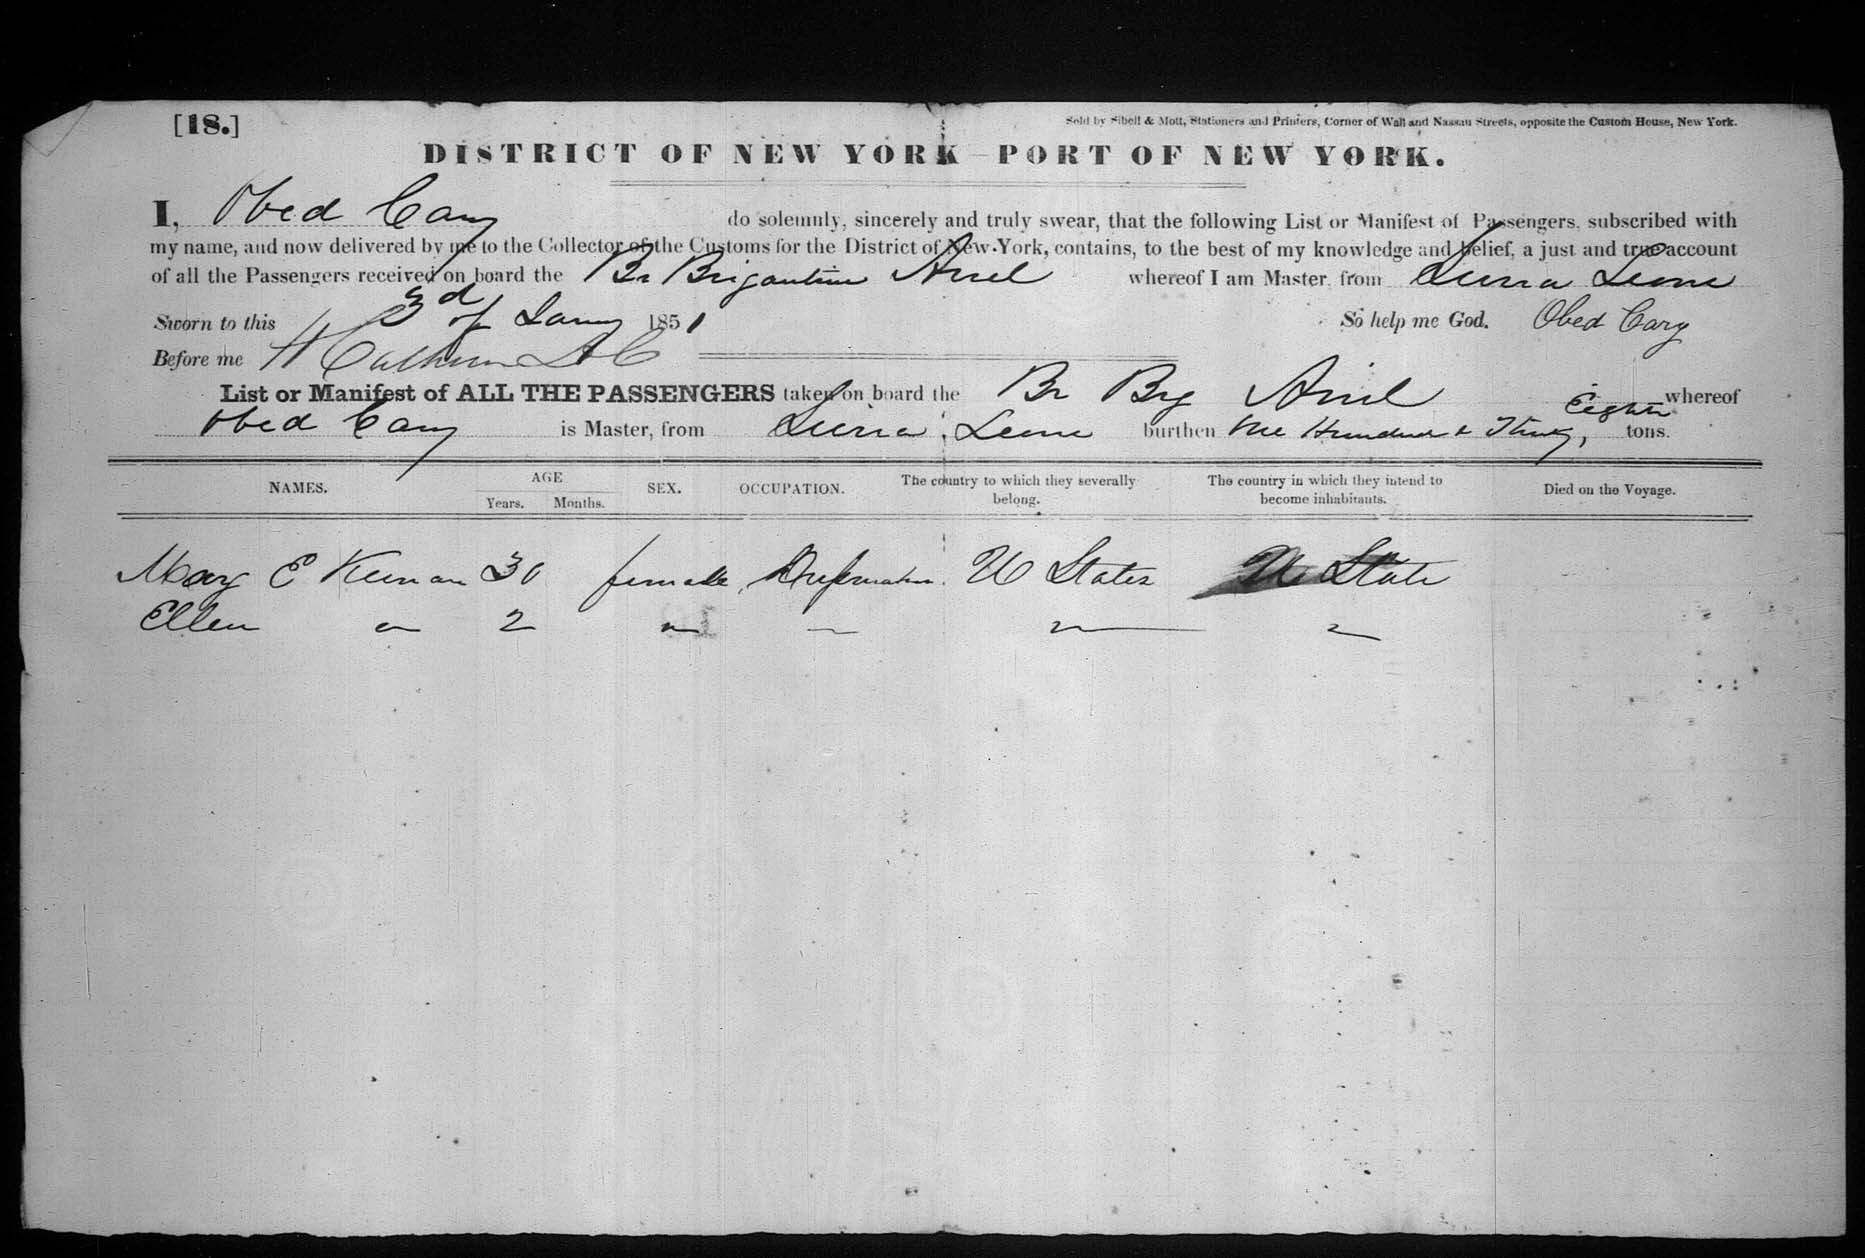 [18.]
Sold by Sibell & Mott, Stationers and Printers, Corner of Wall and Nassau Streets, opposite the Custom House, New York.
DISTRICT OF NEW YORK—PORT OF NEW YORK.
I, Obed Cary do solemnly, sincerely and truly swear, that the following List or Manifest of Passengers, subscribed with
my name, and now delivered by me to the Collector of the Customs for the District of New-York, contains, to the best of my knowledge and belief, a just and true account
of all the Passengers received on board the Br Brigantine Ariel whereof I am Master, from Sierra Leone
Sworn to this 3d of Jany 1851 So help me God. Obed Cary
Before me
List or Manifest of ALL THE PASSENGERS taken on board the Br Brig Ariel whereof
Obed Cary is Master, from Sierra Leone burthen One Hundred & Thirty, Eight tons.
NAMES. AGE SEX. OCCUPATION. The country to which they severally belong. The country in which they intend to become inhabitants. Died on the Voyage.
Years. Months.
Mary E 30 female, U States U State
Ellen " 2 " " " "